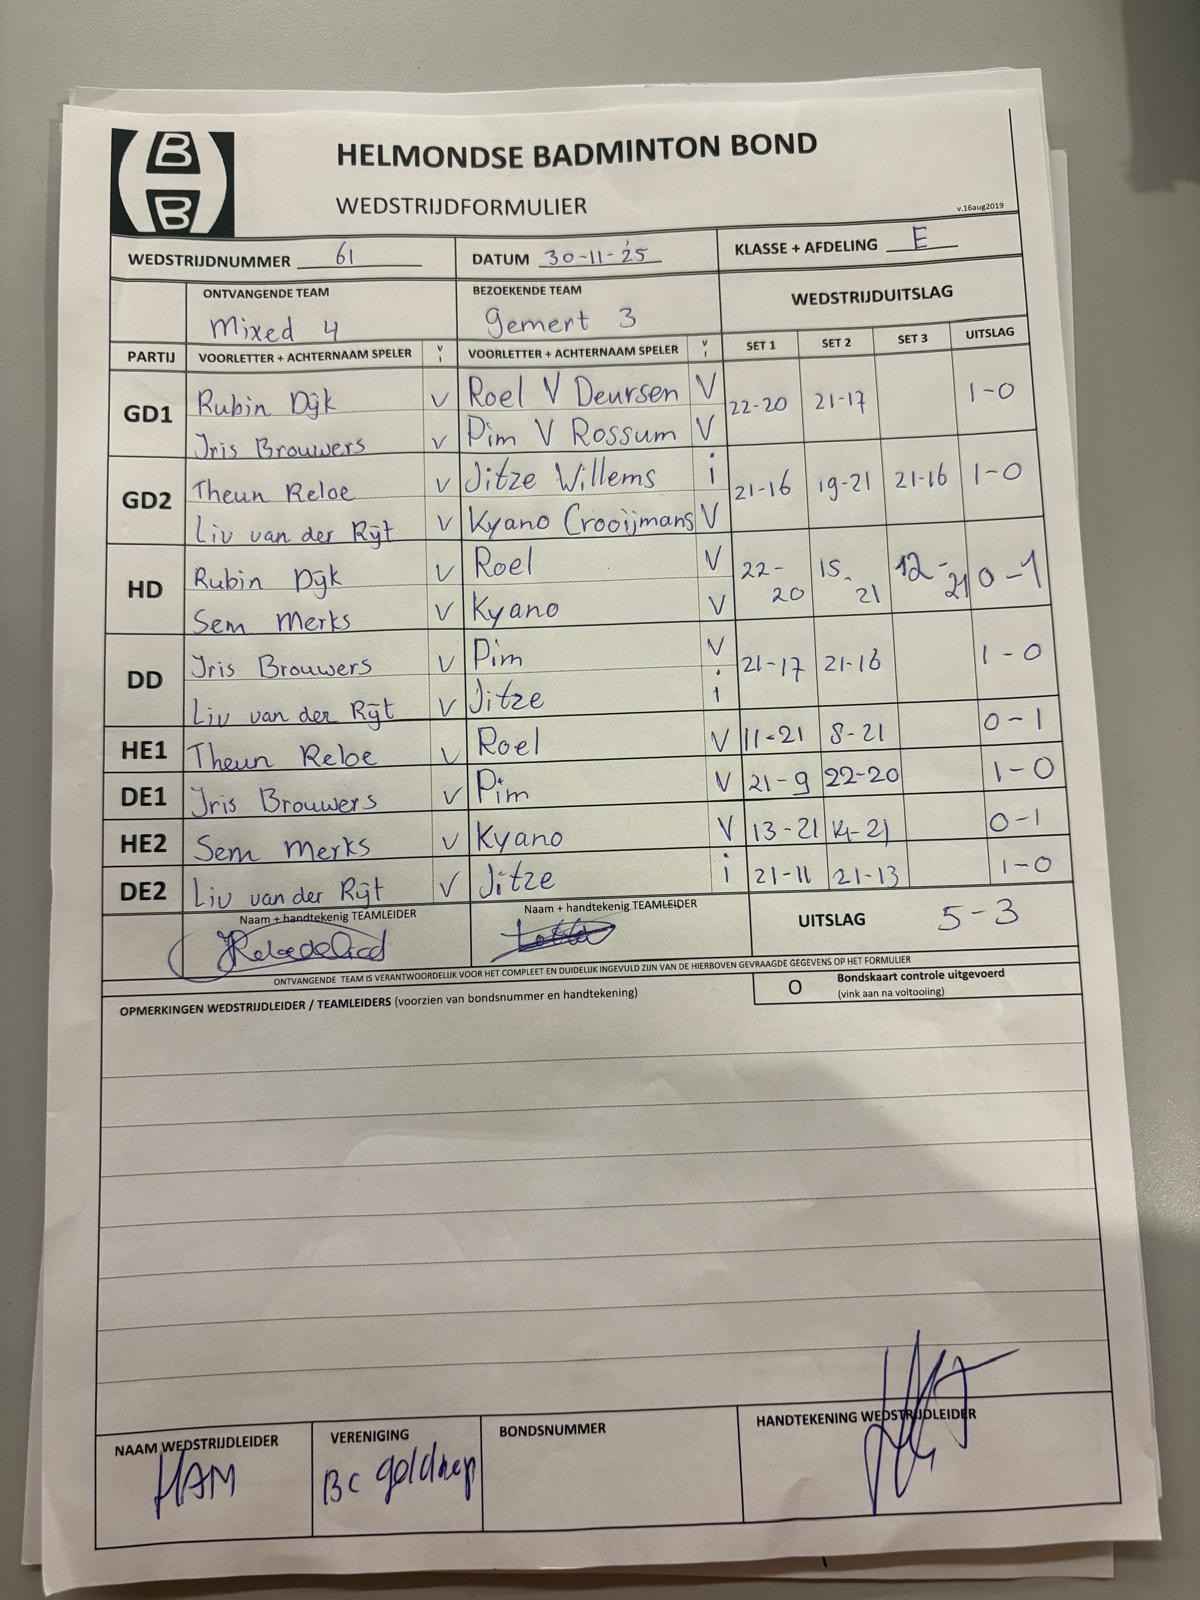 B
B
HELMONDSE BADMINTON BOND
WEDSTRIJDFORMULIER
v.16aug2019
WEDSTRIJDNUMMER 61 DATUM 30-11-25 KLASSE + AFDELING E
ONTVANGENDE TEAM BEZOEKENDE TEAM WEDSTRIJDUITSLAG
Mixed 4 gemert 3
PARTIJ VOORLETTER + ACHTERNAAM SPELER V I VOORLETTER + ACHTERNAAM SPELER V I SET 1 SET 2 SET 3 UITSLAG
GD1 Rubin Dijk V Roel V Deursen V 22-20 21-17 1-0
Iris Brouwers V Pim V Rossum V
GD2 Theun Reloe V Jitze Willems i 21-16 19-21 21-16 1-0
Liv van der Rijt V Kyano Crooijmans V
HD Rubin Dijk V Roel V 22-20 15-21 12-21 0-1
Sem Merks V Kyano V
DD Iris Brouwers V Pim V 21-17 21-16 1-0
Liv van der Rijt V Jitze i
HE1 Theun Reloe V Roel V 11-21 8-21 0-1
DE1 Iris Brouwers V Pim V 21-9 22-20 1-0
HE2 Sem Merks V Kyano V 13-21 14-21 0-1
DE2 Liv van der Rijt V Jitze i 21-11 21-13 1-0
Naam + handtekenig TEAMLEIDER Naam + handtekenig TEAMLEIDER UITSLAG 5-3
ONTVANGENDE TEAM IS VERANTWOORDELIJK VOOR HET COMPLEET EN DUIDELIJK INGEVULD ZIJN VAN DE HIERBOVEN GEVRAAGDE GEGEVENS OP HET FORMULIER
OPMERKINGEN WEDSTRIJDLEIDER / TEAMLEIDERS (voorzien van bondsnummer en handtekening) O Bondskaart controle uitgevoerd
(vink aan na voltooling)
NAAM WEDSTRIJDLEIDER VERENIGING BONDSNUMMER HANDTEKENING WEDSTRIJDLEIDER
HAM BC